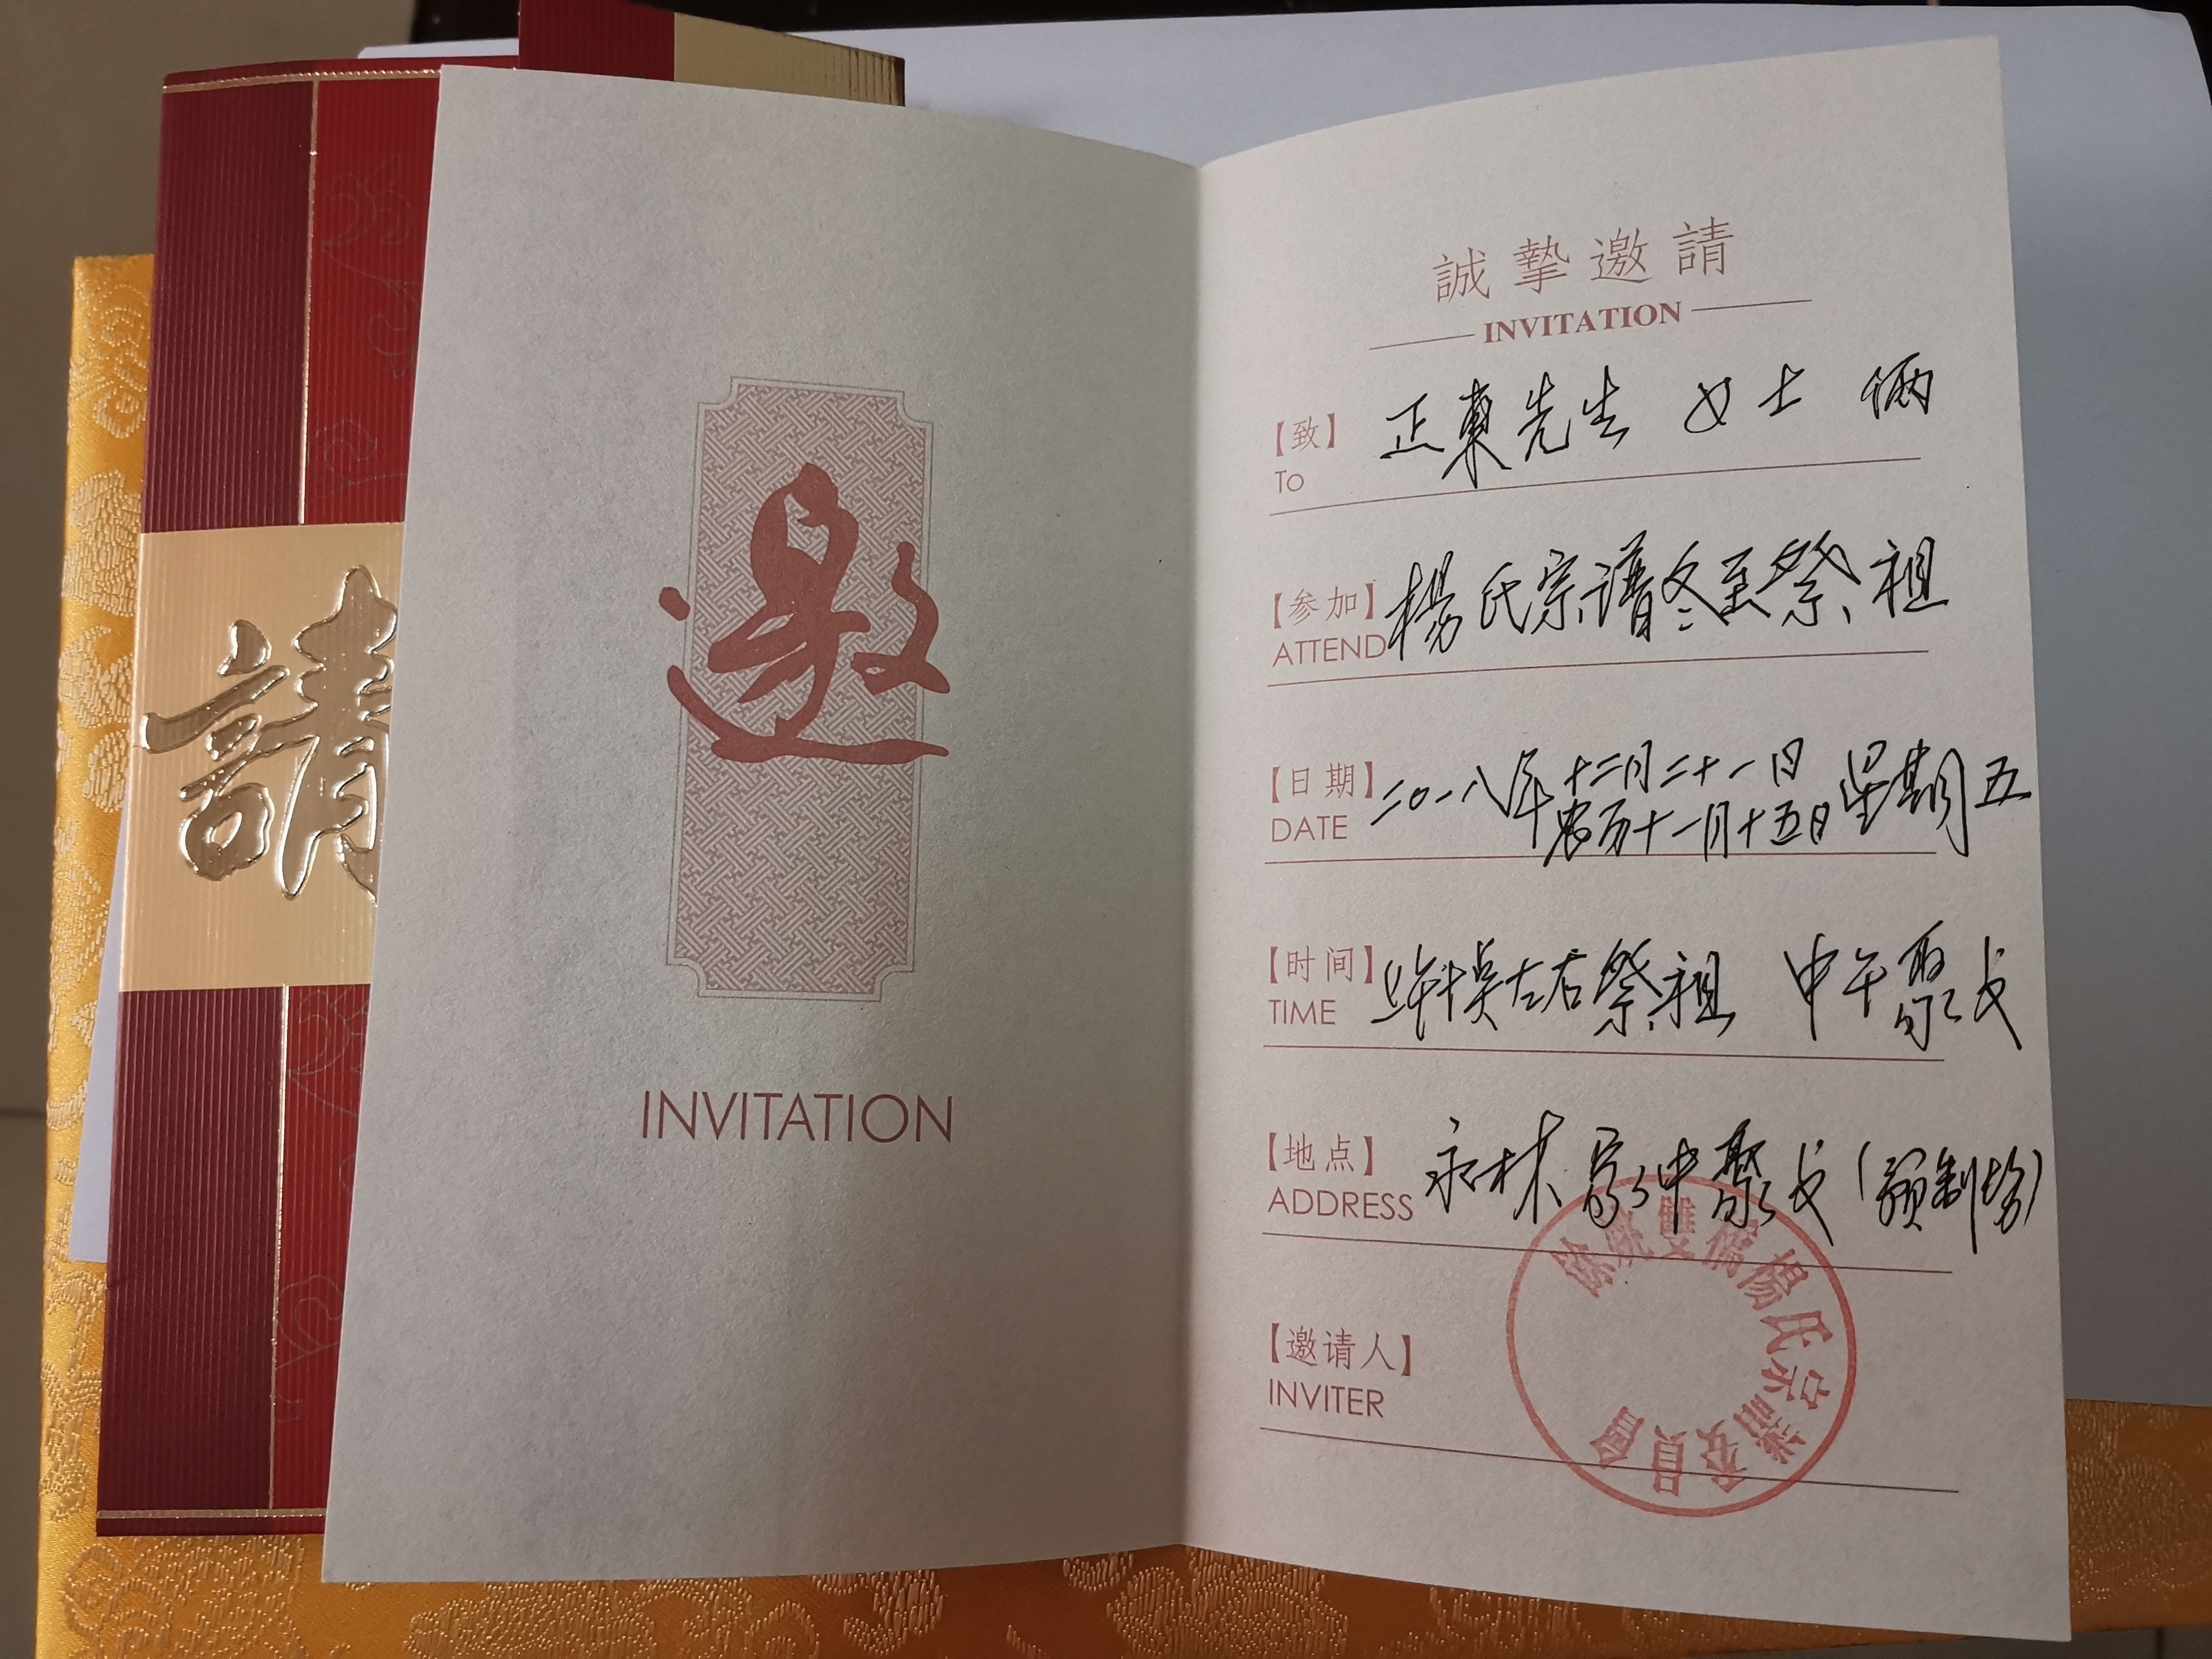 請
邀
INVITATION
誠摯邀請
INVITATION
【致】 正東先生 女士 俩
To
【参加】 楊氏宗谱冬至祭祖
ATTEND
【日期】 二〇一八年十二月二十一日 星期五
农历十一月十五日
DATE
【时间】 左右祭祖 中午聚
TIME
【地点】 永林家中聚 (预制场)
ADDRESS
【邀请人】
INVITER
餘姚雙橋楊氏宗譜委員會